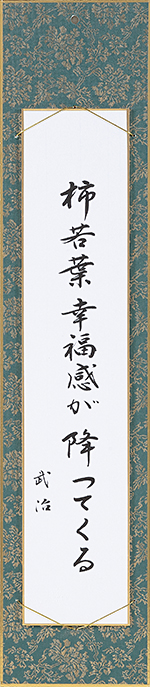 柿若葉幸福感が降つてくる
武治